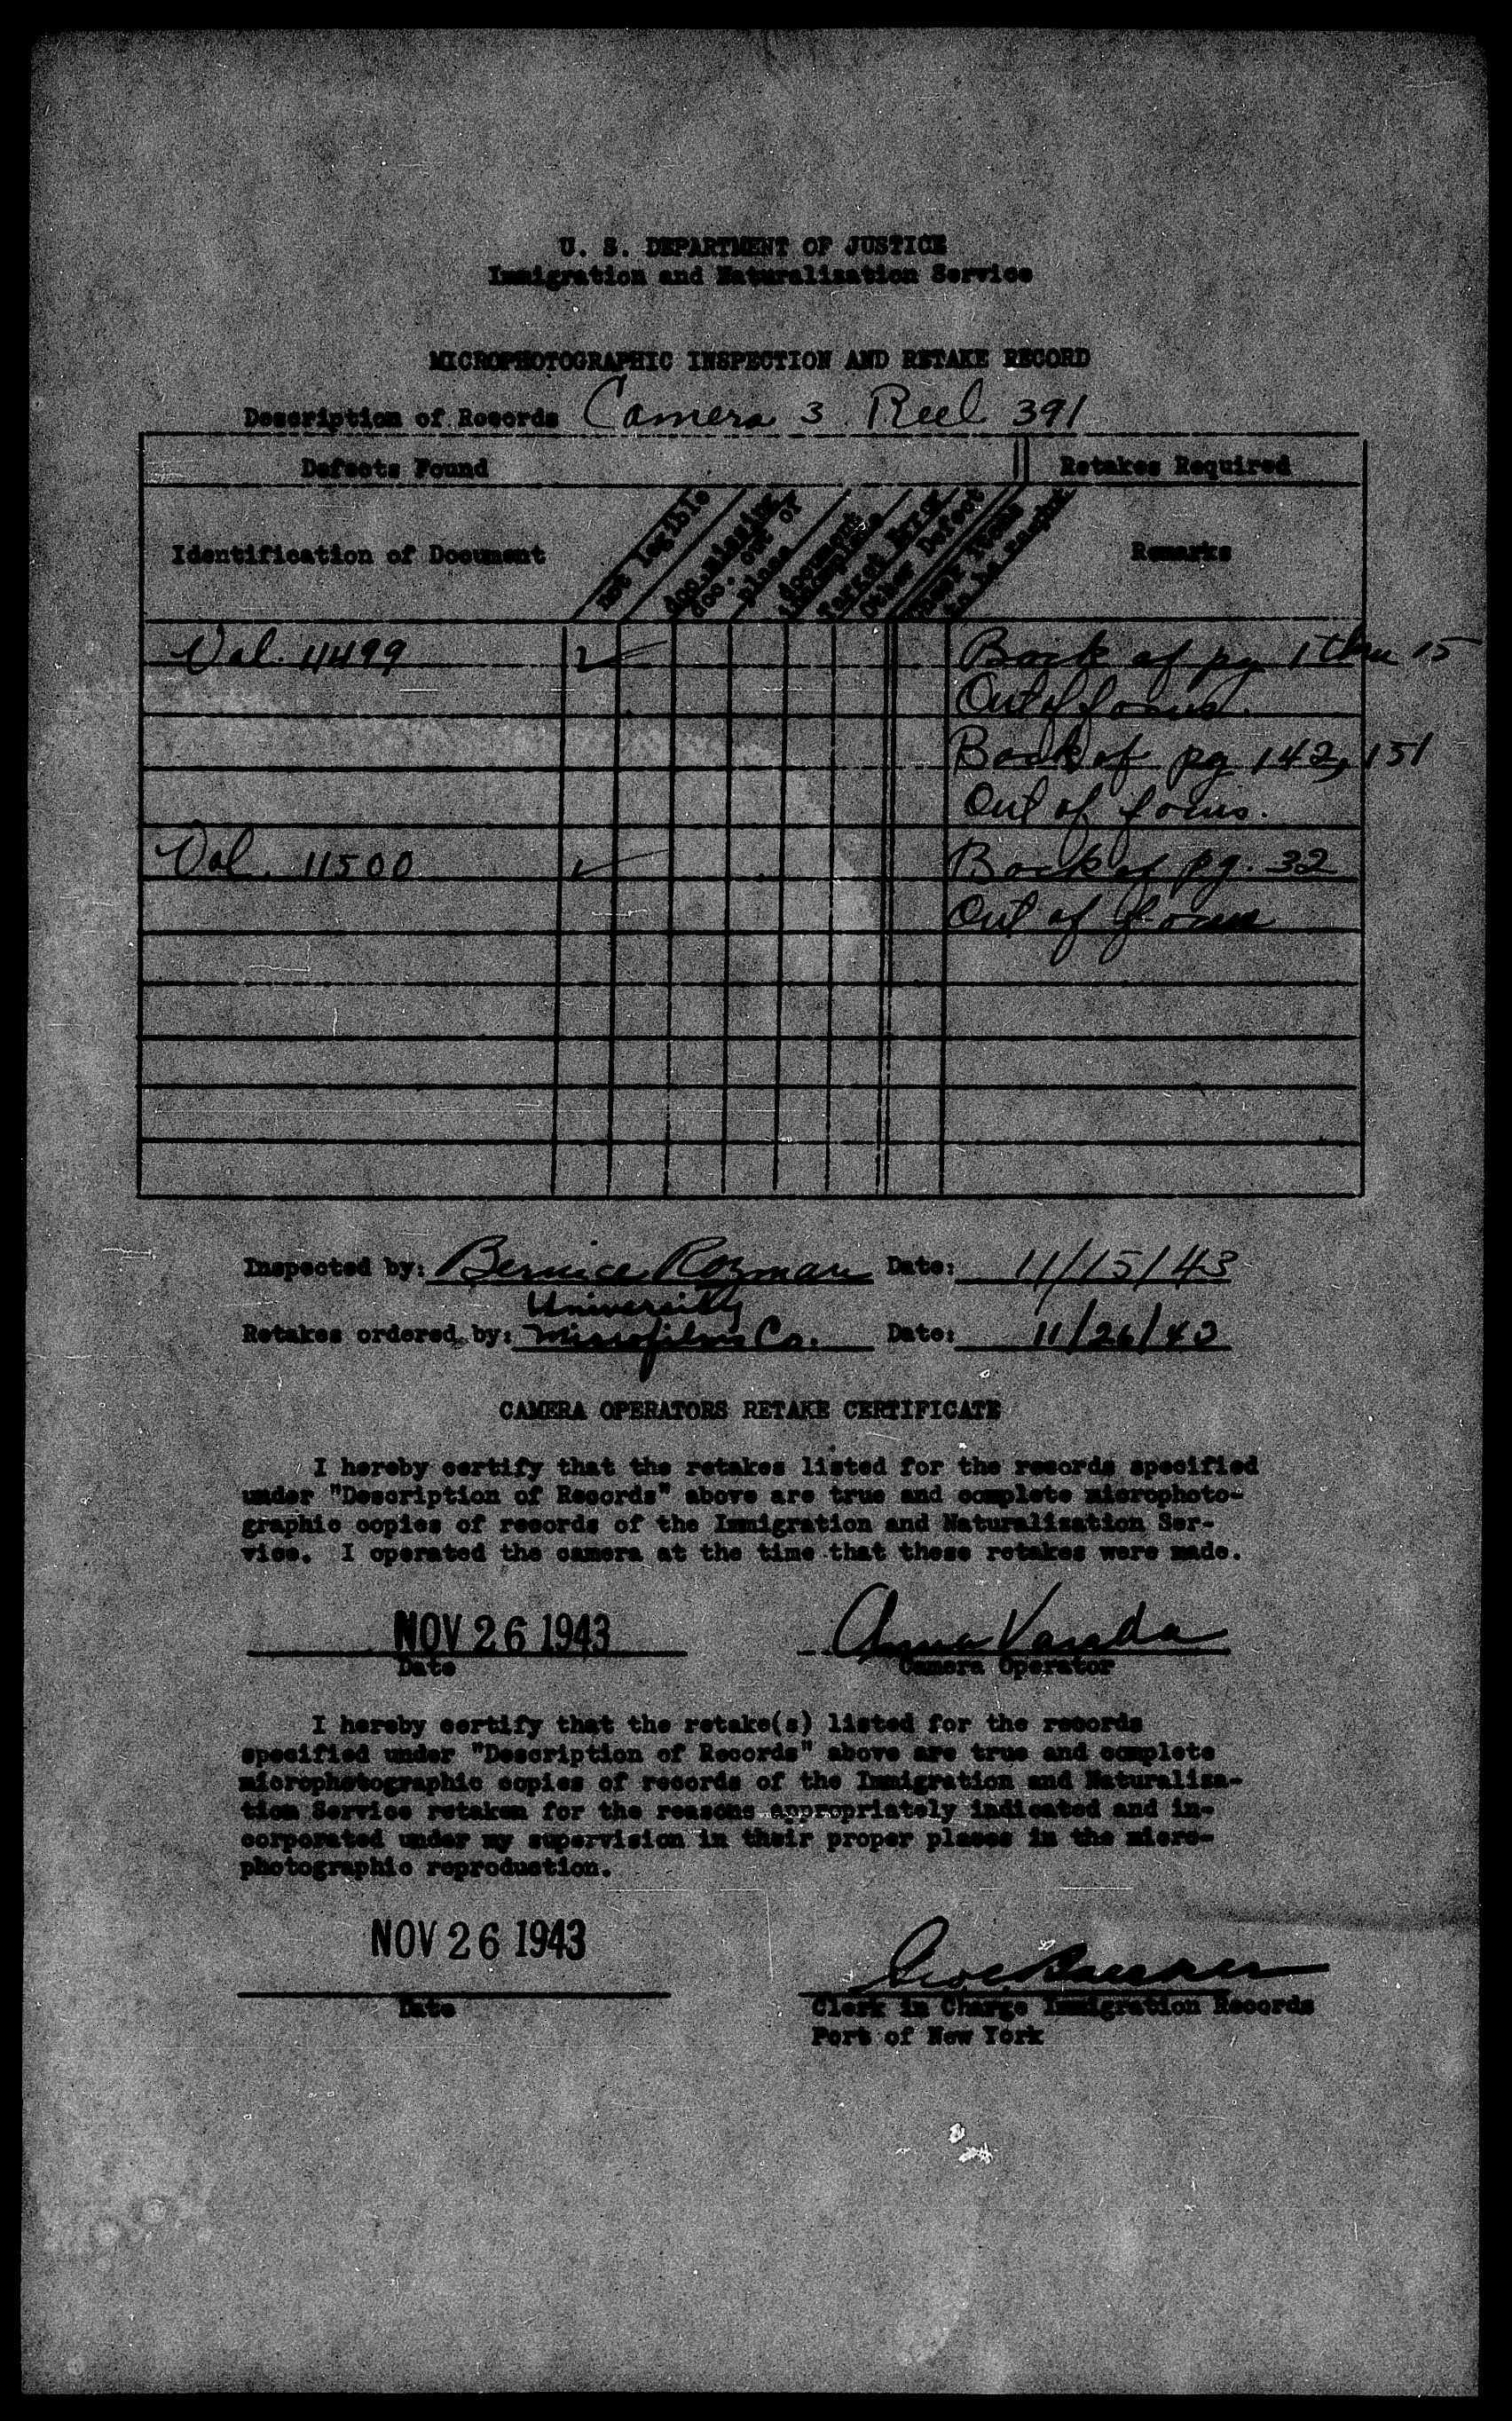 U. S. DEPARTMENT OF JUSTICE
Immigration and Naturalization Service
MICROPHOTOGRAPHIC INSPECTION AND RETAKE RECORD
Description of Records Camera 3 Reel 391
Defects Found Retakes Required
Identification of Document
not legible
doc. missing
doc. out of place
document incomplete
Target Error
Other Defect
Remarks
Vol. 11499 ✓ Back of pg 1 thru 15
Out of focus.
Back of pg 142, 151
Out of focus.
Vol. 11500 ✓ Back of pg. 32
Out of focus
Inspected by: Bernice Rozman Date: 11/15/43
University
Retakes ordered by: Microfilms Co. Date: 11/26/43
CAMERA OPERATORS RETAKE CERTIFICATE
I hereby certify that the retakes listed for the records specified
under "Description of Records" above are true and complete microphoto-
graphic copies of records of the Immigration and Naturalization Ser-
vice. I operated the camera at the time that these retakes were made.
NOV 26 1943 Anna
Date Camera Operator
I hereby certify that the retake(s) listed for the records
specified under "Description of Records" above are true and complete
microphotographic copies of records of the Immigration and Naturaliza-
tion Service retaken for the reasons appropriately indicated and in-
corporated under my supervision in their proper places in the micro-
photographic reproduction.
NOV 26 1943
Date Clerk in Charge Immigration Records
Port of New York